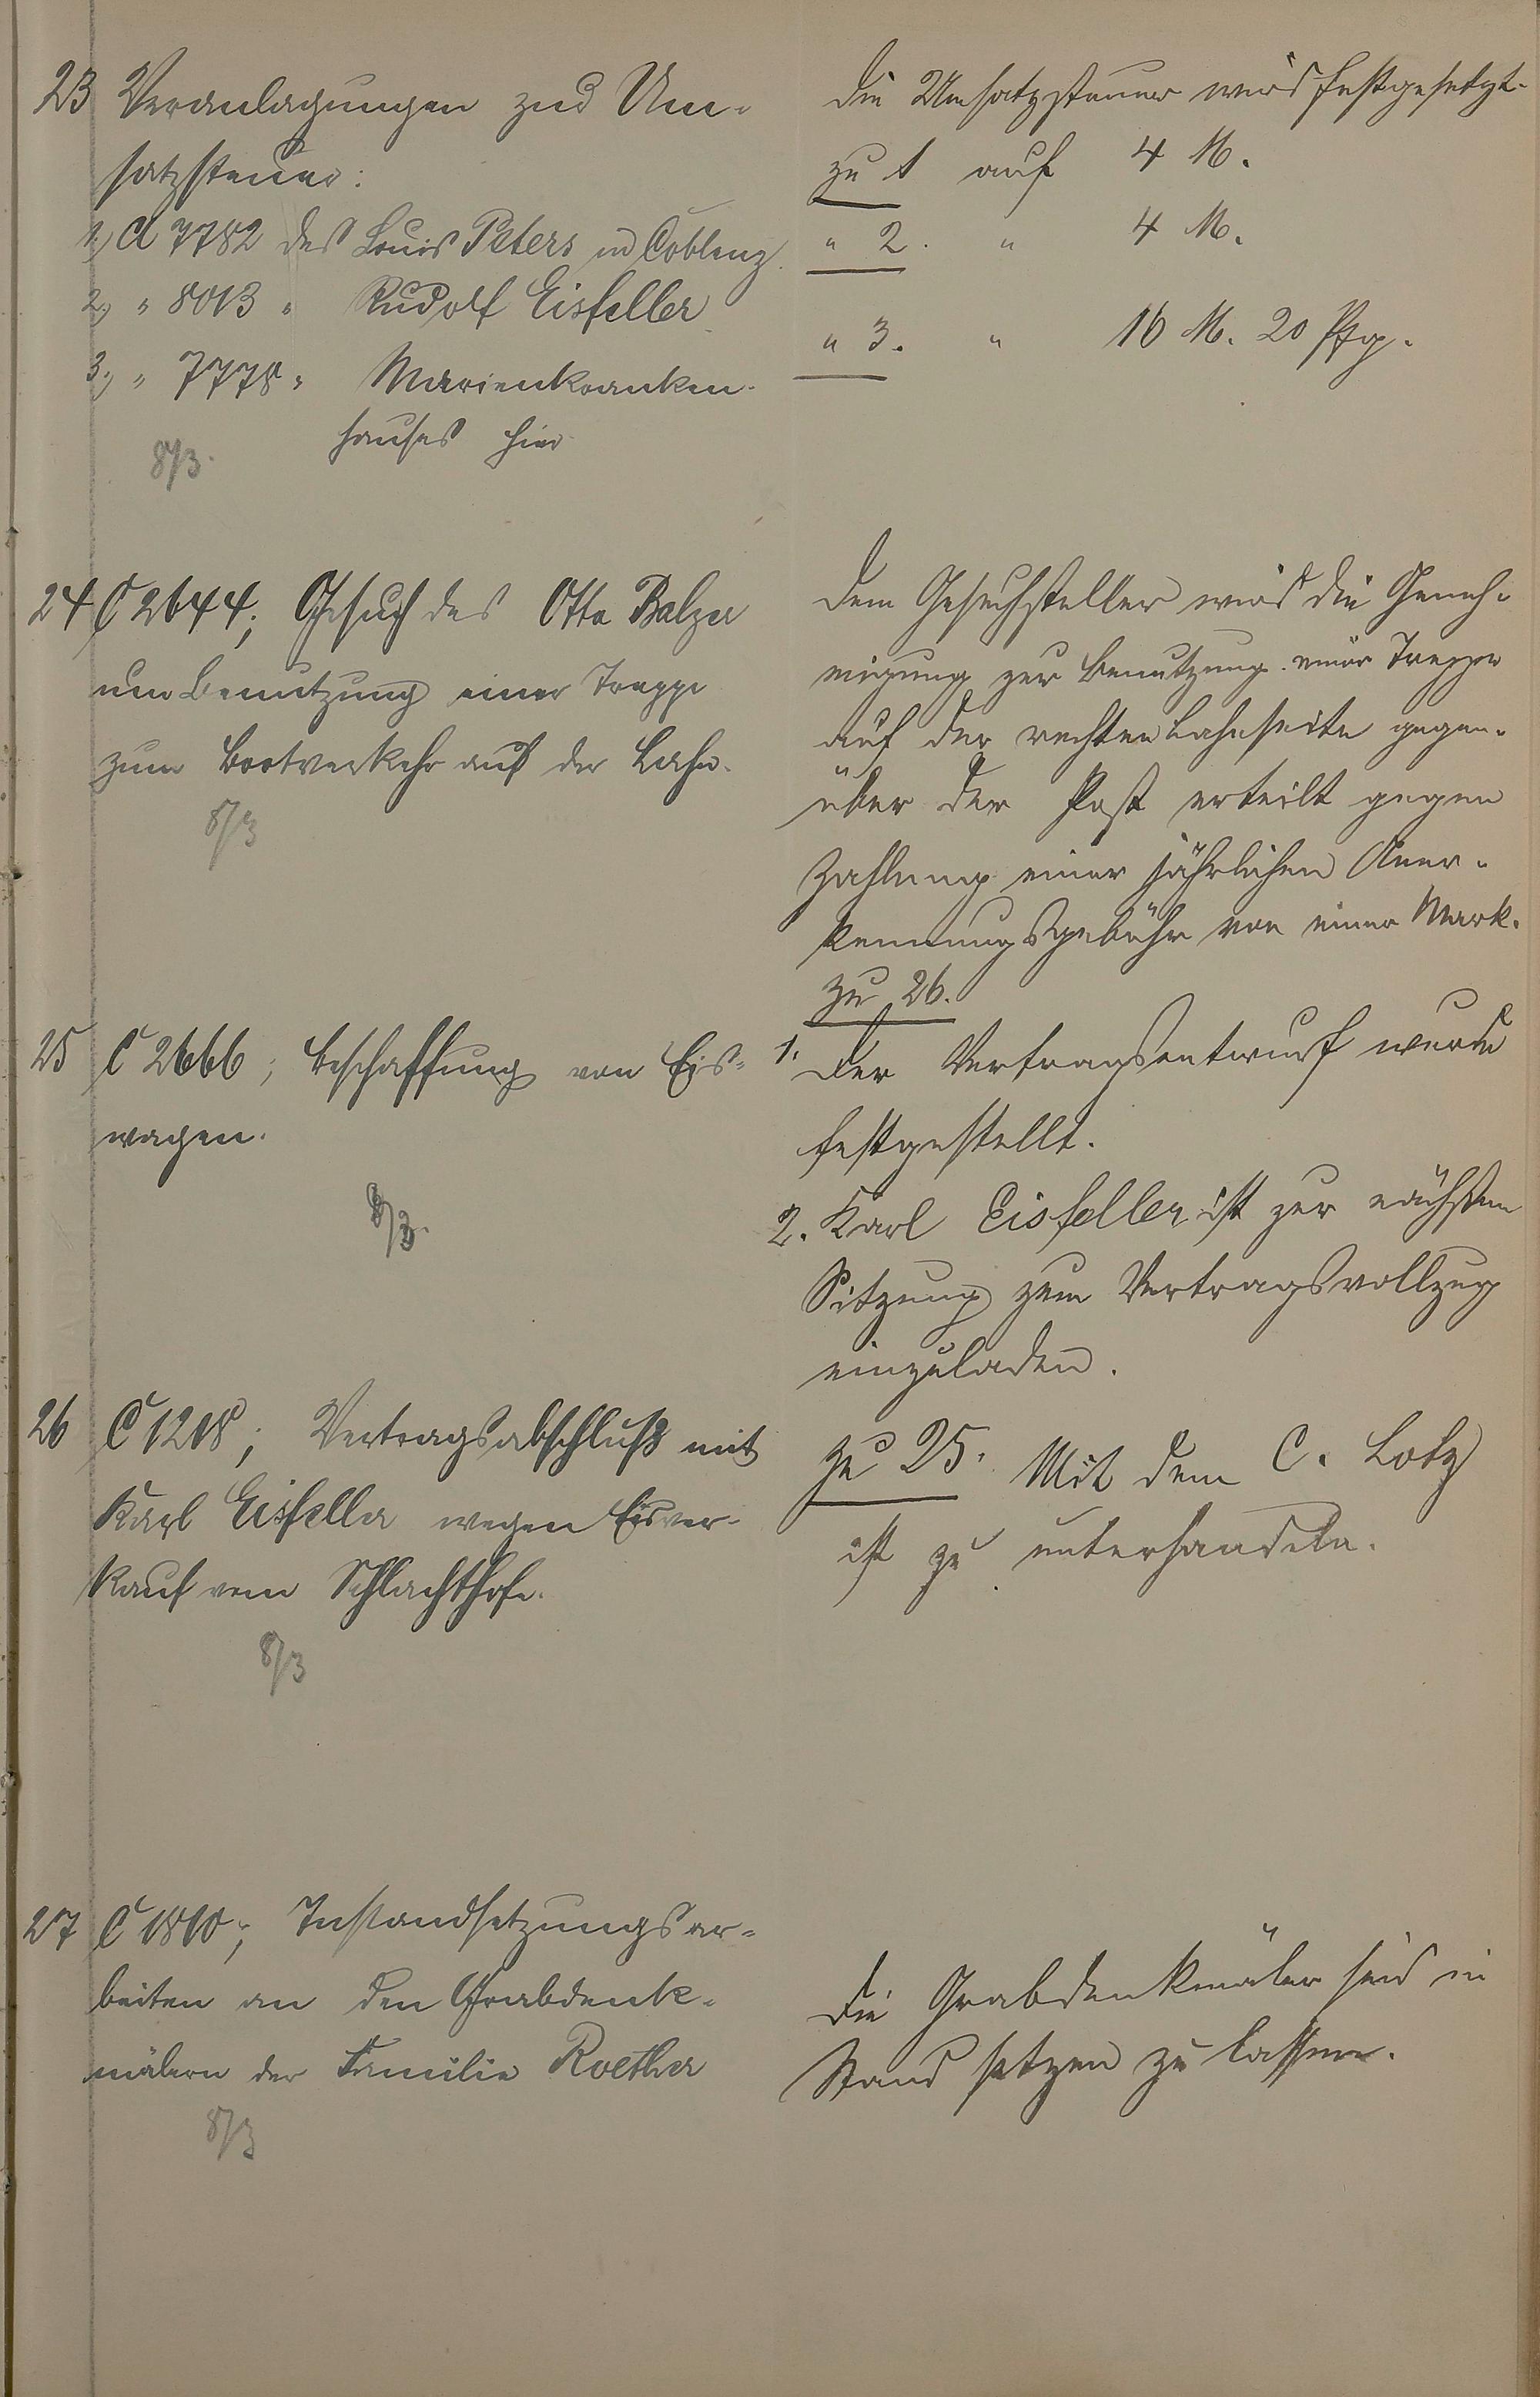 23 Veranlagungen zur Um-
satzsteuer:
1.) A 7782 des Louis Peters in Coblenz.
2.) " 8013 " Rudolf Eisfeller
3.) " 7778 " Marienkranken-
hauses hier
8/3.
Die Umsatzsteuer wird festgesetzt.
zu 1 auf 4 M.
" 2. " 4 M.
" 3. " 16 M. 20 Pfg.
24 C 2644; Gesuch des Otto Balzer
um Benutzung einer Treppe
zum Bootverkehr auf der Lahn.
8/3
Dem Gesuchsteller wird die Geneh-
migung zur Benutzung einer Treppe
auf der rechten Lahnseite gegen-
über der Post erteilt gegen
Zahlung einer jährlichen Aner-
kennungsgebühr von einer Mark.
25 C 2666; Beschaffung von Eis-
wagen.
8/3.
zu 26.
1. Der Vertragsentwurf wurde
festgestellt.
2. Karl Eisfeller ist zur nächsten
Sitzung zum Vertragsvollzug
einzuladen.
26 C 1218; Vertragsabschluß mit
Karl Eisfeller wegen Eisver-
kauf vom Schlachthofe.
8/3
zu 25. Mit dem C. Lotz
ist zu unterhandeln.
27 C 1810; Instandsetzungsar-
beiten an den Grabdenk-
mälern der Familie Roether
8/3
Die Grabdenkmäler sind in
Stand setzen zu lassen.